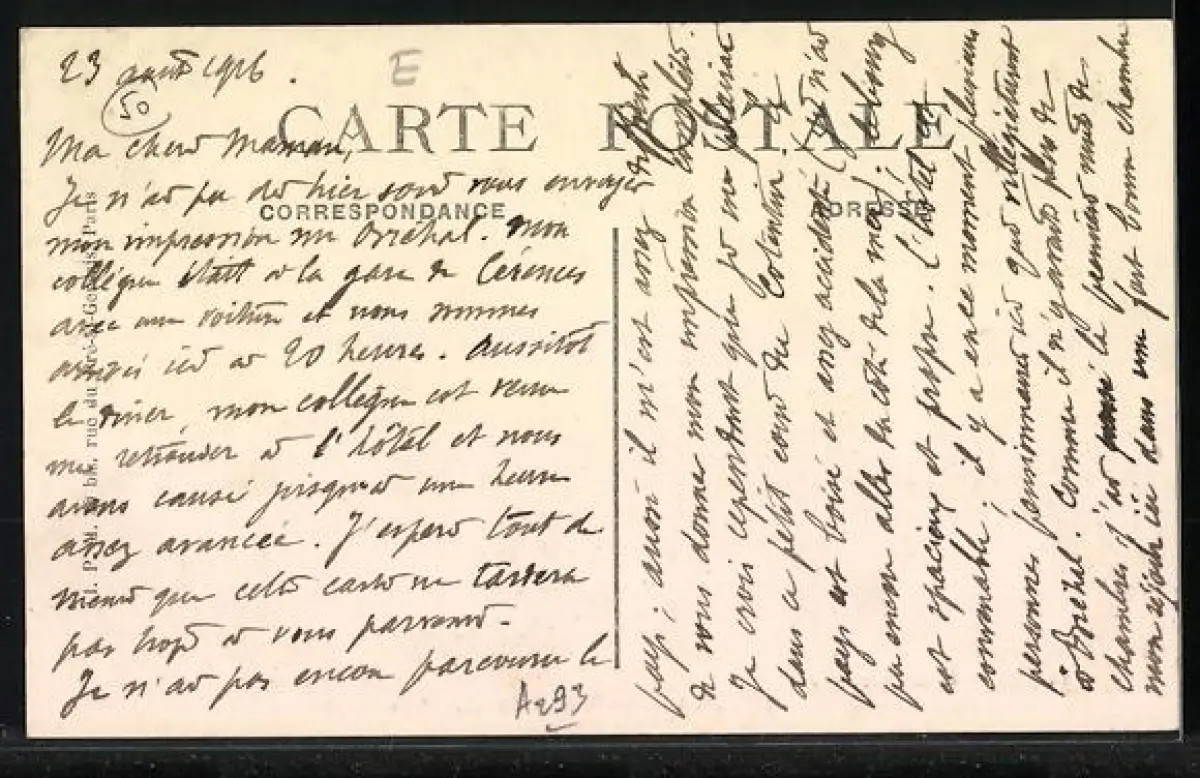 23 août 1926.
E
50
CARTE POSTALE
Ma chere Maman,
Je n'ai pu dès hier soir vous envoyer
CORRESPONDANCE
ADRESSE
mon impression sur Bréhal. Mon
collègue était à la gare de Cérences
avec une voiture et nous sommes
arrivés ici à 20 heures. Aussitôt
le diner, mon collègue est venu
me retrouver à l'hôtel et nous
avons causé jusqu'à une heure
assez avancée. J'espère tout de
même que cette carte ne tardera
pas trop à vous parvenir.
Je n'ai pas encore parcouru le
A293
pays; aussi il m'est assez difficile
de vous donner mon impression complète.
Je crois cependant que je me plairai
dans ce petit coin du Cotentin. Le
pays est boisé et assez accidenté (je n'ai
pu encore aller du côté de la mer); le bourg
est spacieux et propre. L'hôtel est
convenable; il y a en ce moment plusieurs
personnes pensionnaires ici qui villégiaturent
à Bréhal. Comme il n'y avait plus de
chambres j'ai passé la première nuit de
mon séjour ici dans une fort bonne chambre
rue du Pré-St-Gervais, Paris